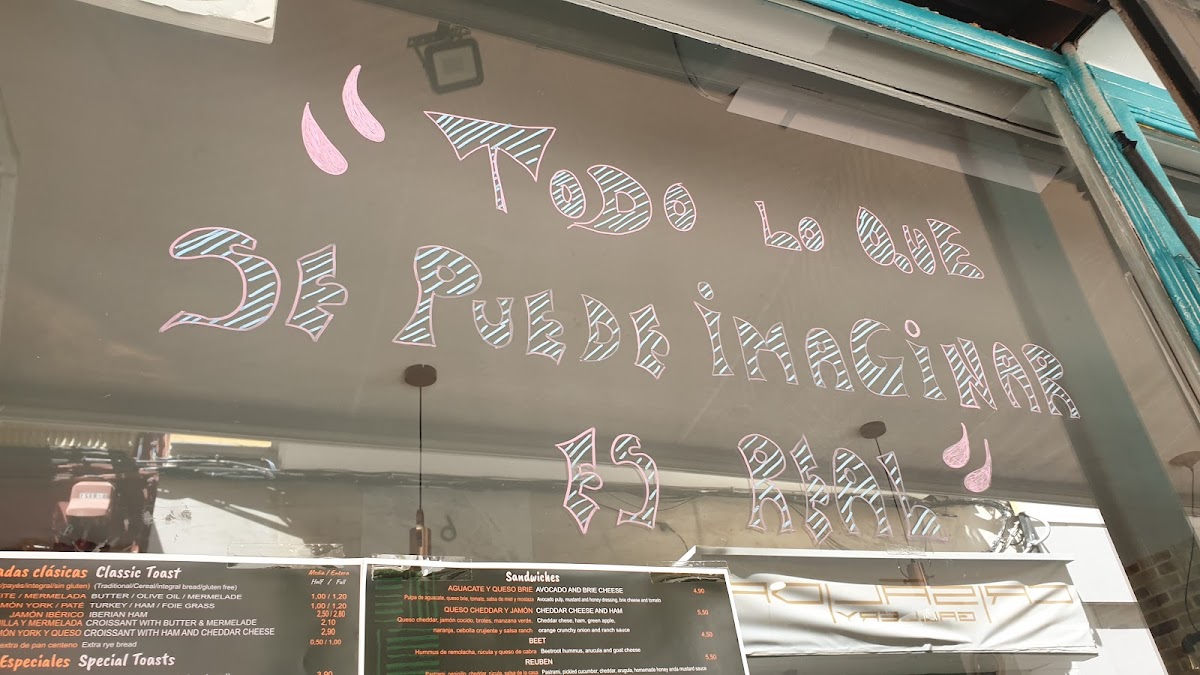 “Todo lo que
se puede imaginar
es real”
adas clásicas Classic Toast
Media / Entera
Half / Full
payés/integral/sin gluten) (Traditional/Cereal/integral bread/gluten free)
ITE / MERMELADA BUTTER / OLIVE OIL / MERMELADE 1,00 / 1,20
MÓN YORK / PATÉ TURKEY / HAM / FOIE GRASS 1,00 / 1,20
JAMÓN IBÉRICO IBERIAN HAM 2,50 / 2,80
ILLA Y MERMELADA CROISSANT WITH BUTTER & MERMELADE 2,10
MÓN YORK Y QUESO CROISSANT WITH HAM AND CHEDDAR CHEESE 2,90
extra de pan centeno Extra rye bread 0,50 / 1,00
Especiales Special Toasts
3,90
Sandwiches
AGUACATE Y QUESO BRIE AVOCADO AND BRIE CHEESE 4,90
Pulpa de aguacate, queso brie, tomate, salsa de miel y mostaza Avocado pulp, mustard and honey dressing, brie cheese and tomato
QUESO CHEDDAR Y JAMÓN CHEDDAR CHEESE AND HAM 5,50
Queso cheddar, jamón cocido, brotes, manzana verde, Cheddar chese, ham, green apple,
naranja, cebolla crujiente y salsa ranch orange crunchy onion and ranch sauce
BEET 4,50
Hummus de remolacha, rúcula y queso de cabra Beetroot hummus, arucula and goat cheese
REUBEN 5,50
Pastrami, pepinillo, cheddar, rúcula, salsa de la casa Pastrami, pickled cucumber, cheddar, arugula, homemade honey anda mustard sauce